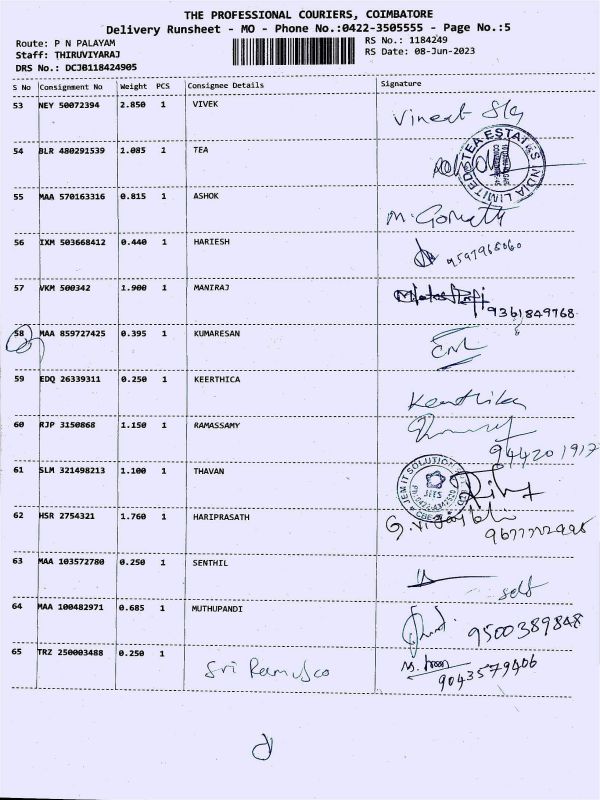 THE PROFESSIONAL COURIERS, COIMBATORE
Delivery Runsheet - MO - Phone No.:0422-3505555 - Page No.:5
Route: P N PALAYAM
RS No.: 1184249
Staff: THIRUVIYARAJ
RS Date: 08-Jun-2023
DRS No.: DCJB118424905
S No Consignment No Weight PCS Consignee Details Signature
53 NEY 50072394 2.850 1 VIVEK
54 BLR 480291539 1.085 1 TEA
TEA ESTATES INDIA LIMITED
55 MAA 570163316 0.815 1 ASHOK
M. Gomathy
56 IXM 503668412 0.440 1 HARIESH
9597968060
57 VKM 500342 1.900 1 MANIRAJ
9361849768
58 MAA 859727425 0.395 1 KUMARESAN
59 EDQ 26339311 0.250 1 KEERTHICA
Keerthika
60 RJP 3150868 1.150 1 RAMASSAMY
944201917
61 SLM 321498213 1.100 1 THAVAN
JEM IT SOLUTION
JEES
62 HSR 2754321 1.760 1 HARIPRASATH
63 MAA 103572780 0.250 1 SENTHIL
self
64 MAA 100482971 0.685 1 MUTHUPANDI
9500389848
65 TRZ 250003488 0.250 1
9043579406